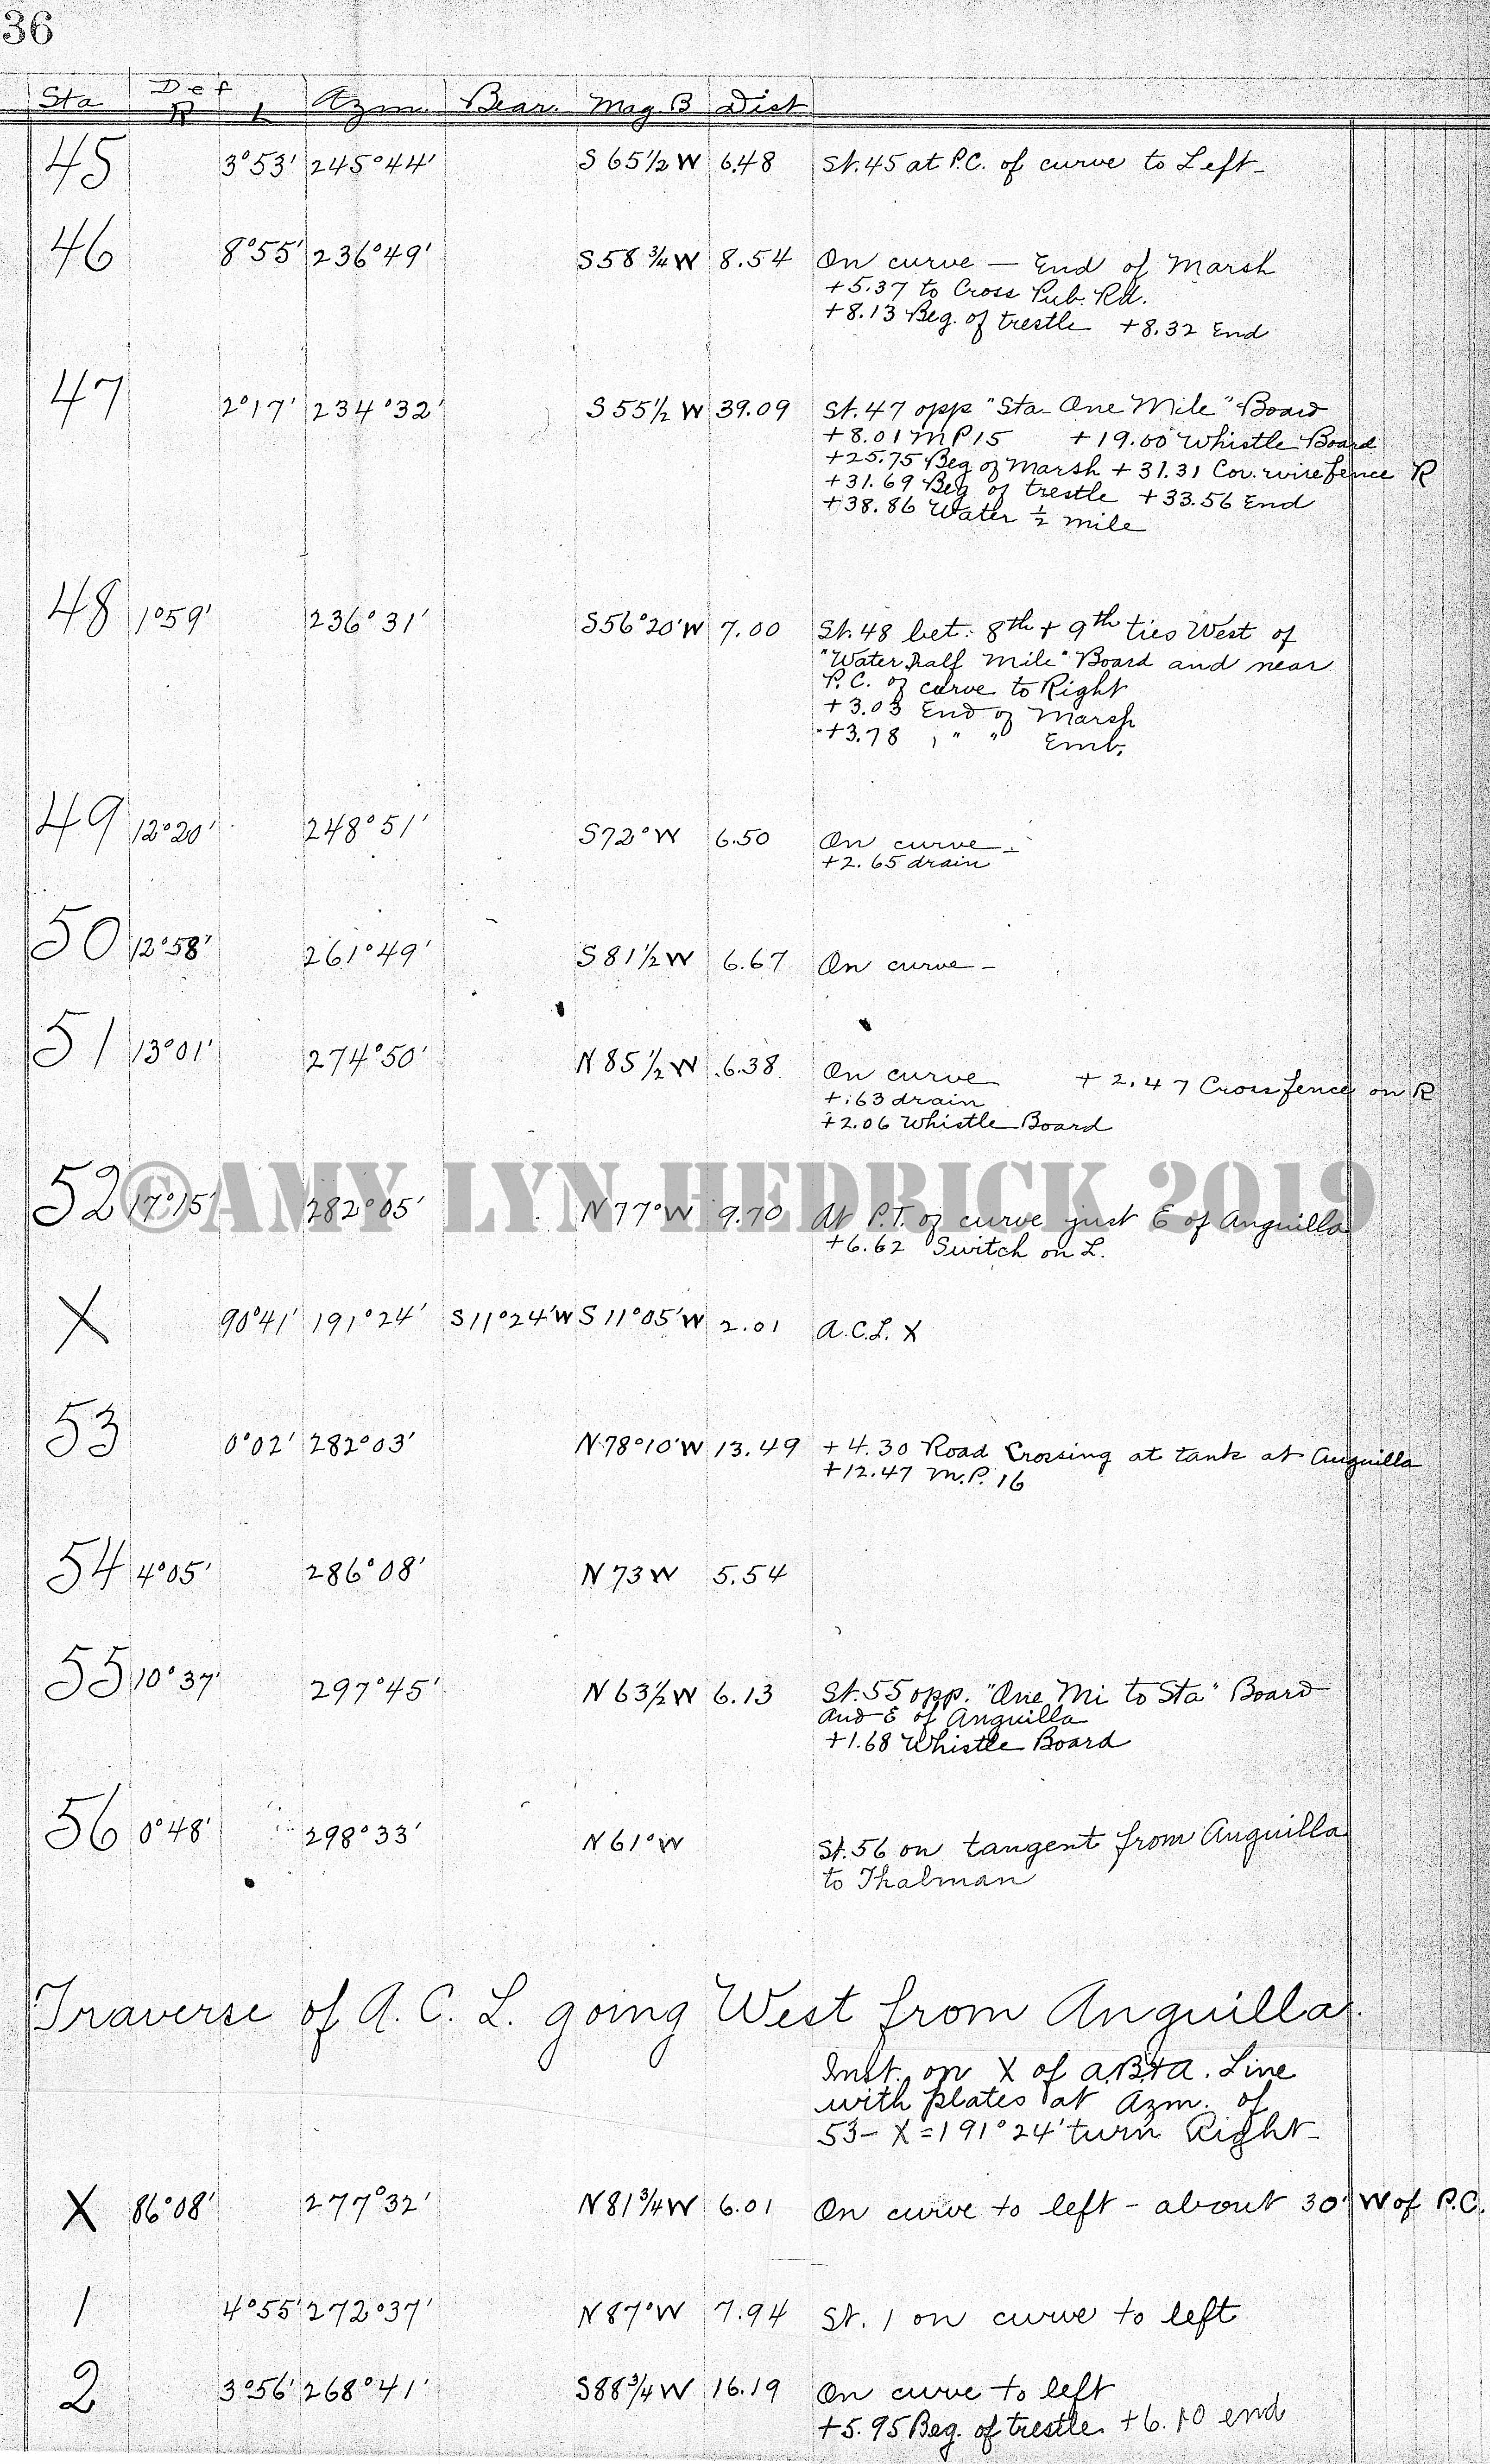 36
Def
Sta R L Azm. Bear. Mag B Dist
45 3°53' 245°44' S 65 1/2 W 6.48 St. 45 at P.C. of curve to Left-
46 8°55' 236°49' S 58 3/4 W 8.54 On curve — End of Marsh
+5.37 to Cross Pub. Rd.
+8.13 Beg. of trestle +8.32 End
47 2°17' 234°32' S 55 1/2 W 39.09 St. 47 opp "Sta-One Mile" Board
+8.01 M P 15 +19.00 Whistle Board
+25.75 Beg of Marsh +31.31 Cor. wire fence R
+31.69 Beg of trestle +33.56 End
+38.86 Water 1/2 mile
48 1°59' 236°31' S56°20'W 7.00 St. 48 bet. 8th + 9th ties West of
"Water half Mile" Board and near
P.C. of curve to Right
+3.03 End of Marsh
+3.78 " " Emb.
49 12°20' 248°51' S72°W 6.50 On curve-
+2.65 drain
50 12°58' 261°49' S 81 1/2 W 6.67 On curve-
51 13°01' 274°50' N 85 1/2 W 6.38 On curve +2.47 Cross fence on R
+.63 drain
+2.06 Whistle Board
52 17°15' 282°05' N 77°W 9.70 At P.T. of curve just E of Anguilla
+6.62 Switch on L.
©AMY LYN HEDRICK 2019
X 90°41' 191°24' S11°24'W S 11°05'W 2.01 A.C.L. X
53 0°02' 282°03' N78°10'W 13.49 +4.30 Road Crossing at tank at Anguilla
+12.47 M.P. 16
54 4°05' 286°08' N 73 W 5.54
55 10°37' 297°45' N 63 1/2 W 6.13 St. 55 opp. "One Mi to Sta" Board
and E of Anguilla
+1.68 Whistle Board
56 0°48' 298°33' N 61°W St. 56 on tangent from Anguilla
to Thalman
Traverse of A. C. L. going West from Anguilla.
Inst. on X of A.B.+A. Line
with plates at Azm. of
53-X=191°24' turn Right-
X 86°08' 277°32' N 81 3/4 W 6.01 On curve to left - about 30' W of P.C.
1 4°55' 272°37' N 87°W 7.94 St. 1 on curve to left
2 3°56' 268°41' S88 3/4 W 16.19 On curve to left
+5.95 Beg. of trestle +6.10 end